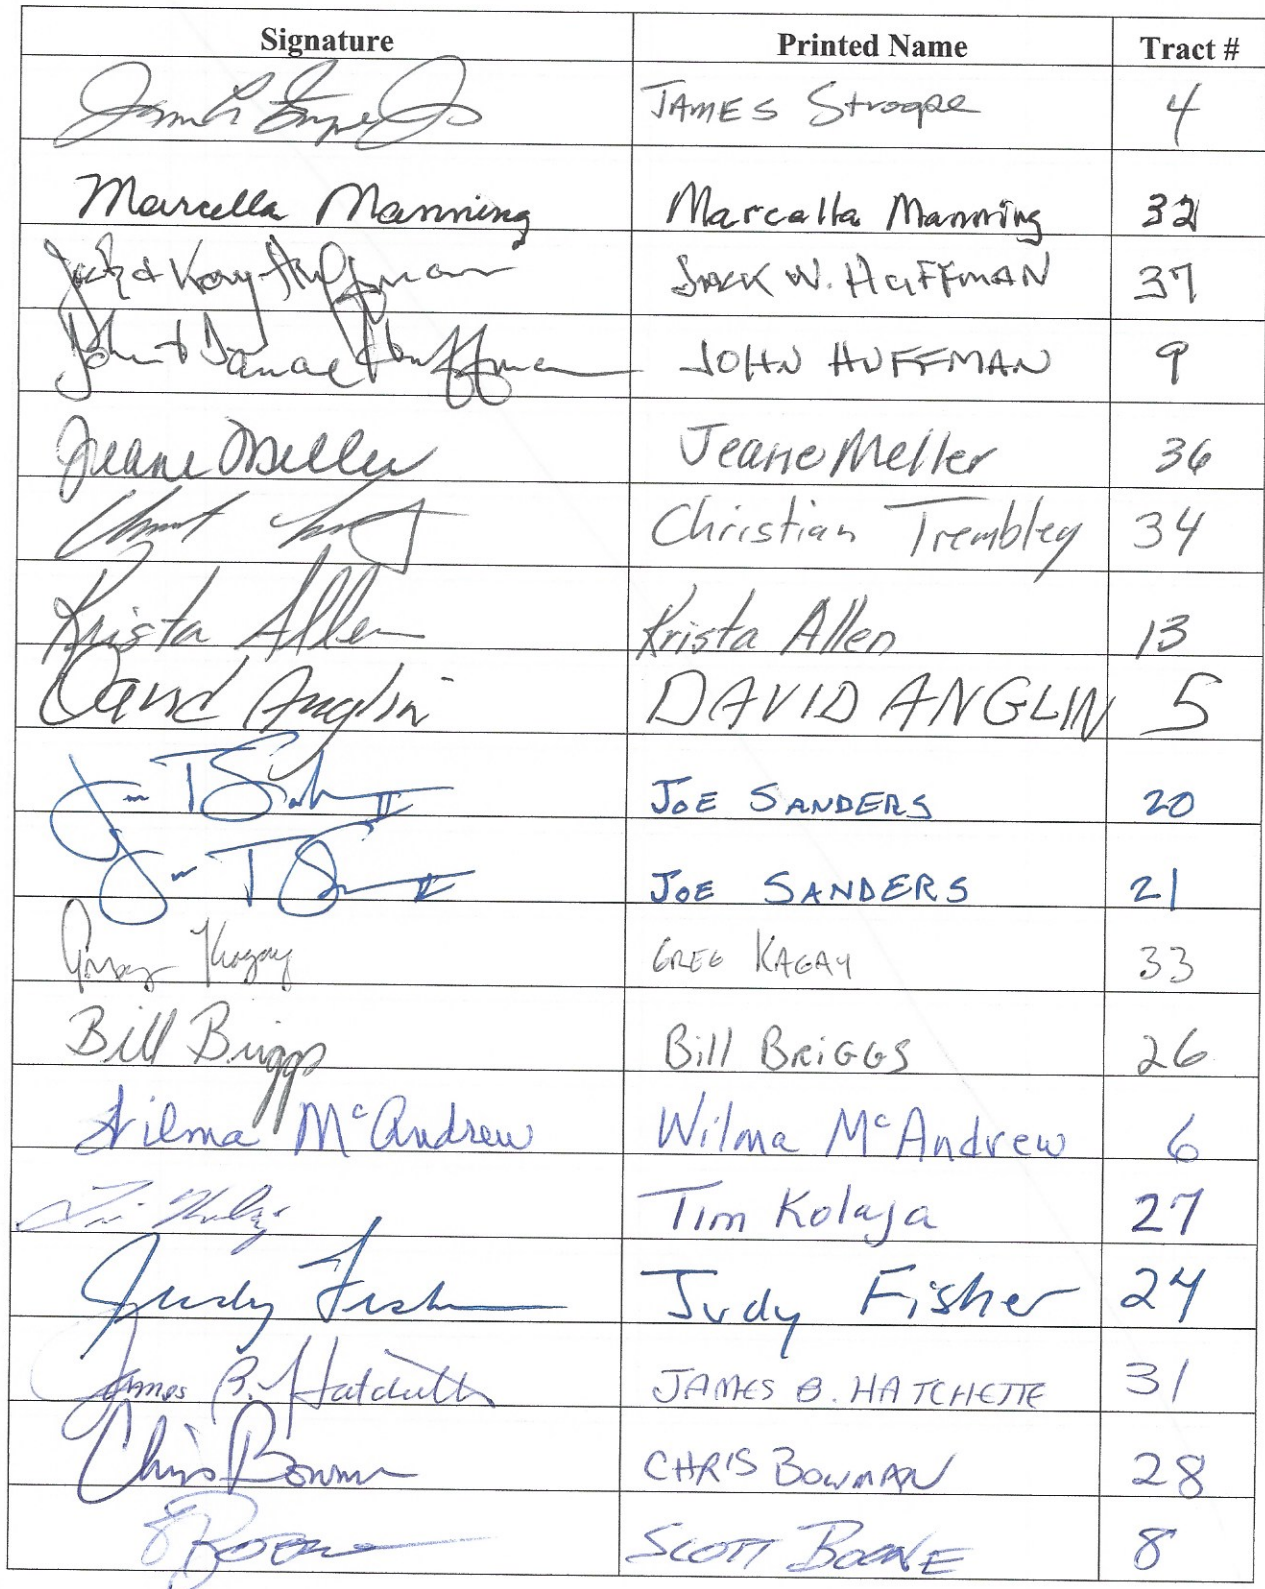 Signature Printed Name Tract #
JAMES Stroope 4
Marcella Manning Marcella Manning 32
Jack & Kay Huffman JACK W. HUFFMAN 37
John & Danae Huffman JOHN HUFFMAN 9
Jeane Meller Jeane Meller 36
Christian Trembley 34
Krista Allen Krista Allen 13
David Anglin DAVID ANGLIN 5
JOE SANDERS 20
JOE SANDERS 21
Greg Kagay GREG KAGAY 33
Bill Briggs Bill BRIGGS 26
Wilma McAndrew Wilma McAndrew 6
Tim Kolaja 27
Judy Fisher Judy Fisher 24
James B. Hatchette JAMES B. HATCHETTE 31
Chris Bowman CHRIS BOWMAN 28
SCOTT BOONE 8